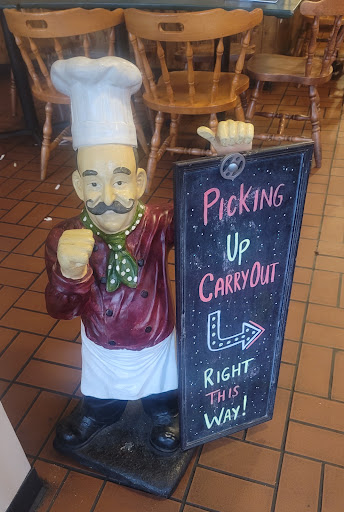 Picking
Up
CarryOut
Right
This
Way!